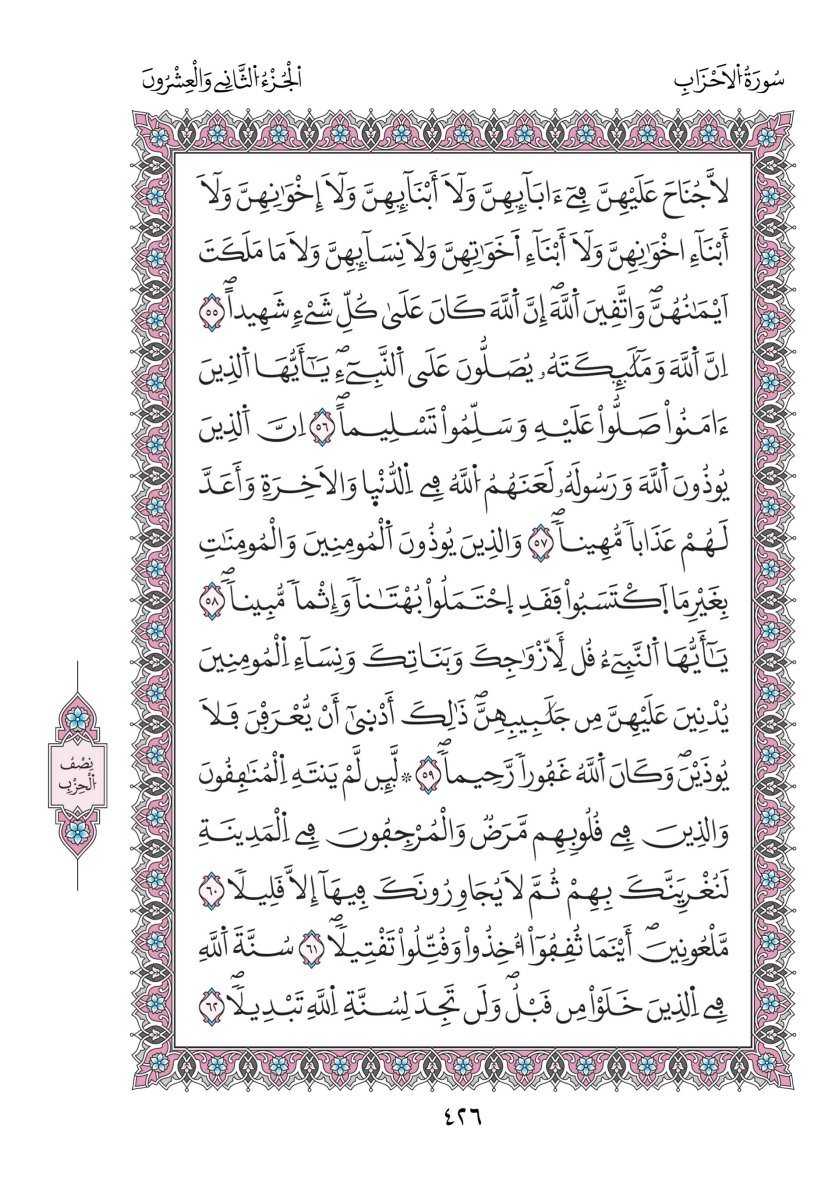 سُورَةُ الَاحْزَابِ
الْجُزْءُ الثَّانِے وَالْعِشْرُونَ
لاَّ جُنَاحَ عَلَيْهِنَّ فِےٓ ءَابَآئِهِنَّ وَلَآ أَبْنَآئِهِنَّ وَلَآ إِخْوَٰنِهِنَّ وَلَآ
أَبْنَآءِ اخْوَٰنِهِنَّ وَلَآ أَبْنَآءِ اَخَوَٰتِهِنَّ وَلَا نِسَآئِهِنَّ وَلَا مَا مَلَكَتَ
اَيْمَٰنُهُنَّۖ وَاتَّفِينَ اَللَّهَۖ إِنَّ اَللَّهَ كَانَ عَلَىٰ كُلِّ شَےْءٍ شَهِيداًۖ ٥٥
اِنَّ اَللَّهَ وَمَلَٰٓئِكَتَهُۥ يُصَلُّونَ عَلَى اَلنَّبِےٓءِۖ يَٰٓأَيُّهَا اَلذِينَ
ءَامَنُواْ صَلُّواْ عَلَيْهِ وَسَلِّمُواْ تَسْلِيماًۖ ٥٦ اِنَّ اَلذِينَ
يُوذُونَ اَللَّهَ وَرَسُولَهُۥ لَعَنَهُمُ اُللَّهُ فِے اِلدُّنْيٜا وَالَاخِرَةِ وَأَعَدَّ
لَهُمْ عَذَاباٗ مُّهِيناٗۖ ٥٧ وَالذِينَ يُوذُونَ اَلْمُومِنِينَ وَالْمُومِنَٰتِ
بِغَيْرِ مَا اَكْتَسَبُواْ فَقَدِ اِحْتَمَلُواْ بُهْتَٰناٗ وَإِثْماٗ مُّبِيناٗۖ ٥٨
يَٰٓأَيُّهَا اَلنَّبِےٓءُ قُل لِّأَزْوَٰجِكَ وَبَنَاتِكَ وَنِسَآءِ اِلْمُومِنِينَ
يُدْنِينَ عَلَيْهِنَّ مِن جَلَٰبِيبِهِنَّۖ ذَٰلِكَ أَدْنٜىٰٓ أَنْ يُّعْرَفْنَ فَلَا
يُوذَيْنَۖ وَكَانَ اَللَّهُ غَفُوراٗ رَّحِيماٗۖ ٥٩ ۞ لَّئِن لَّمْ يَنتَهِ اِلْمُنَٰفِقُونَ
وَالذِينَ فِے قُلُوبِهِم مَّرَضٞ وَالْمُرْجِفُونَ فِے اِلْمَدِينَةِ
لَنُغْرِيَنَّكَ بِهِمْ ثُمَّ لَا يُجَاوِرُونَكَ فِيهَآ إِلَّا قَلِيلاٗ ٦٠
مَّلْعُونِينَۖ أَيْنَمَا ثُقِفُوٓاْ أُخِذُواْ وَقُتِّلُواْ تَقْتِيلاٗۖ ٦١ سُنَّةَ اَللَّهِ
فِے اِلذِينَ خَلَوْاْ مِن قَبْلُۖ وَلَن تَجِدَ لِسُنَّةِ اِللَّهِ تَبْدِيلاٗۖ ٦٢
نِصْفُ
اُلْحِزْبِ
٤٢٦